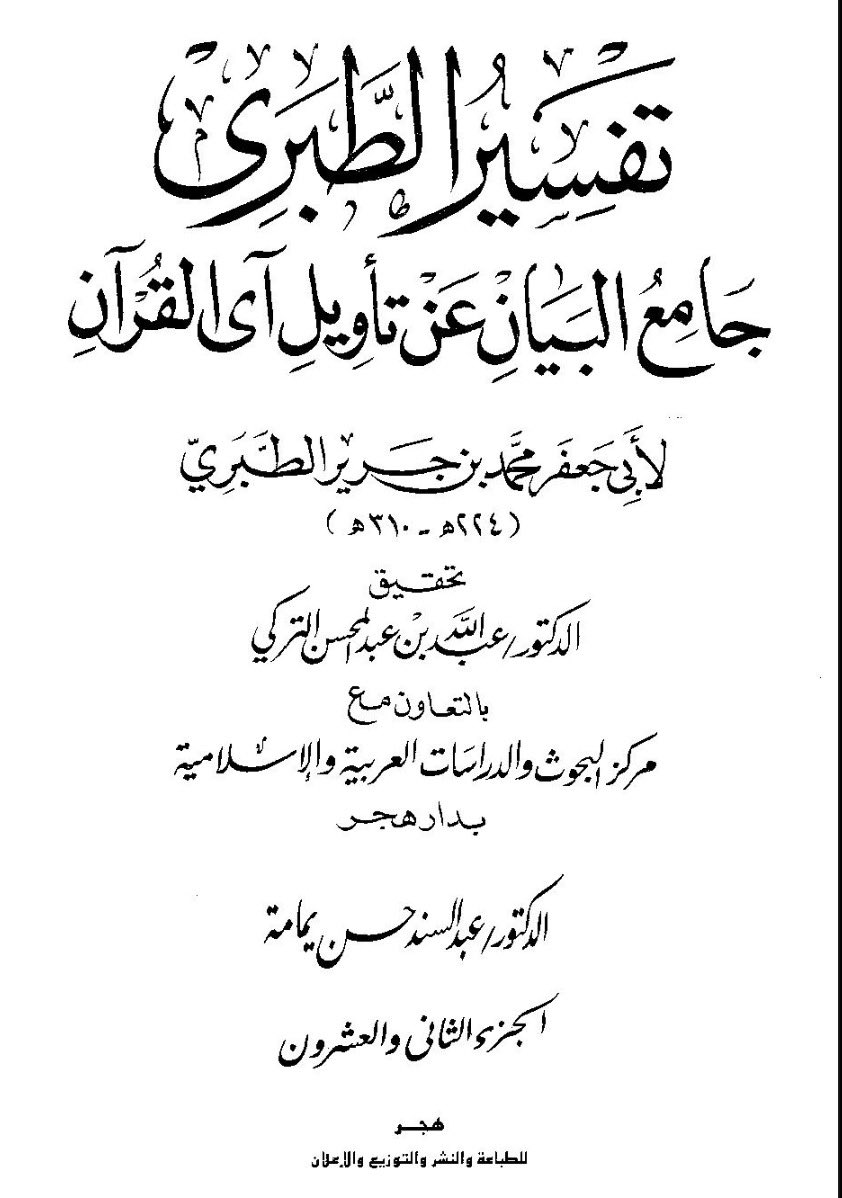 تَفْسِيرُ الطَّبَرِى
جَامِعُ البَيَانِ عَنْ تَأْوِيلِ آىِ القُرْآنِ
لأَبِي جَعفَر مُحمَّد بن جَرير الطَّبَرِيّ
(٢٢٤هـ - ٣١٠هـ)
تحقيق
الدكتور/ عبد الله بن عبد المحسن التركي
بالتعاون مع
مركز البحوث والدراسات العربية والإسلامية
بدار هجر
الدكتور/ عبد السند حسن يمامة
الجزء الثانى والعشرون
هجر
للطباعة والنشر والتوزيع والإعلان